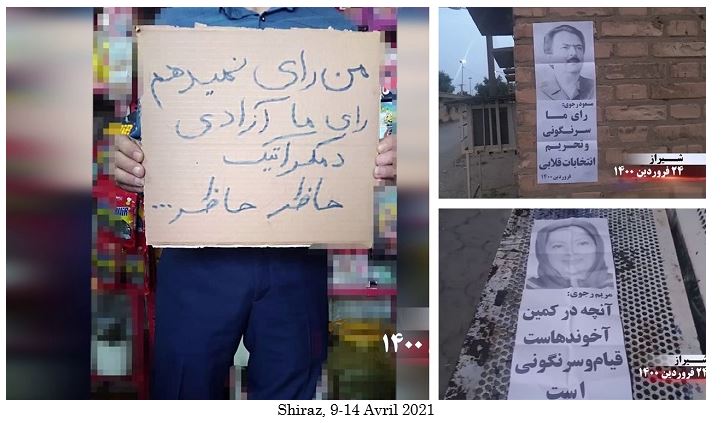 من رای نمیدهم
رای ما آزادی
دمکراتیک
حاظر حاظر...
۱۴۰۰
مسعود رجوی:
رای ما
سرنگونی
و تحریم
انتخابات قلابی
فروردین ۱۴۰۰
شیراز
۲۴ فروردین ۱۴۰۰
مریم رجوی:
آنچه در کمین
آخوندهاست
قیام و سرنگونی
است
شیراز
۲۴ فروردین ۱۴۰۰
Shiraz, 9-14 Avril 2021